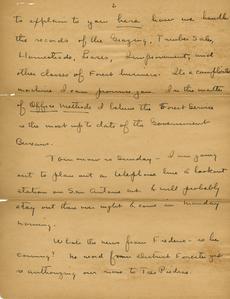 2
to explain to you here how we handle
the records of the Grazing, Timber Sales,
Homesteads, Leases, Improvement, and
other classes of Forest business. It's a complicated
machine I can promise you. In the matter
of Office Methods I believe the Forest Service
is the most up to date of the Government
Bureaus.
Tomorrow is Sunday - I am going
out to plan out a telephone line & lookout
station on San Antone mt. & will probably
stay out there over night & come in Monday
morning.
Whats the news from Frederic - is he
coming? No word from District Forester yet
is authorizing our move to Tres Piedras.